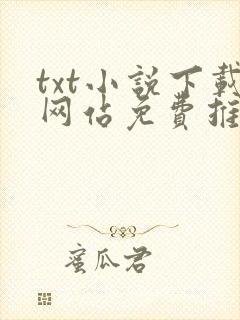 txt小説下載
网佔免費推
蜜瓜君